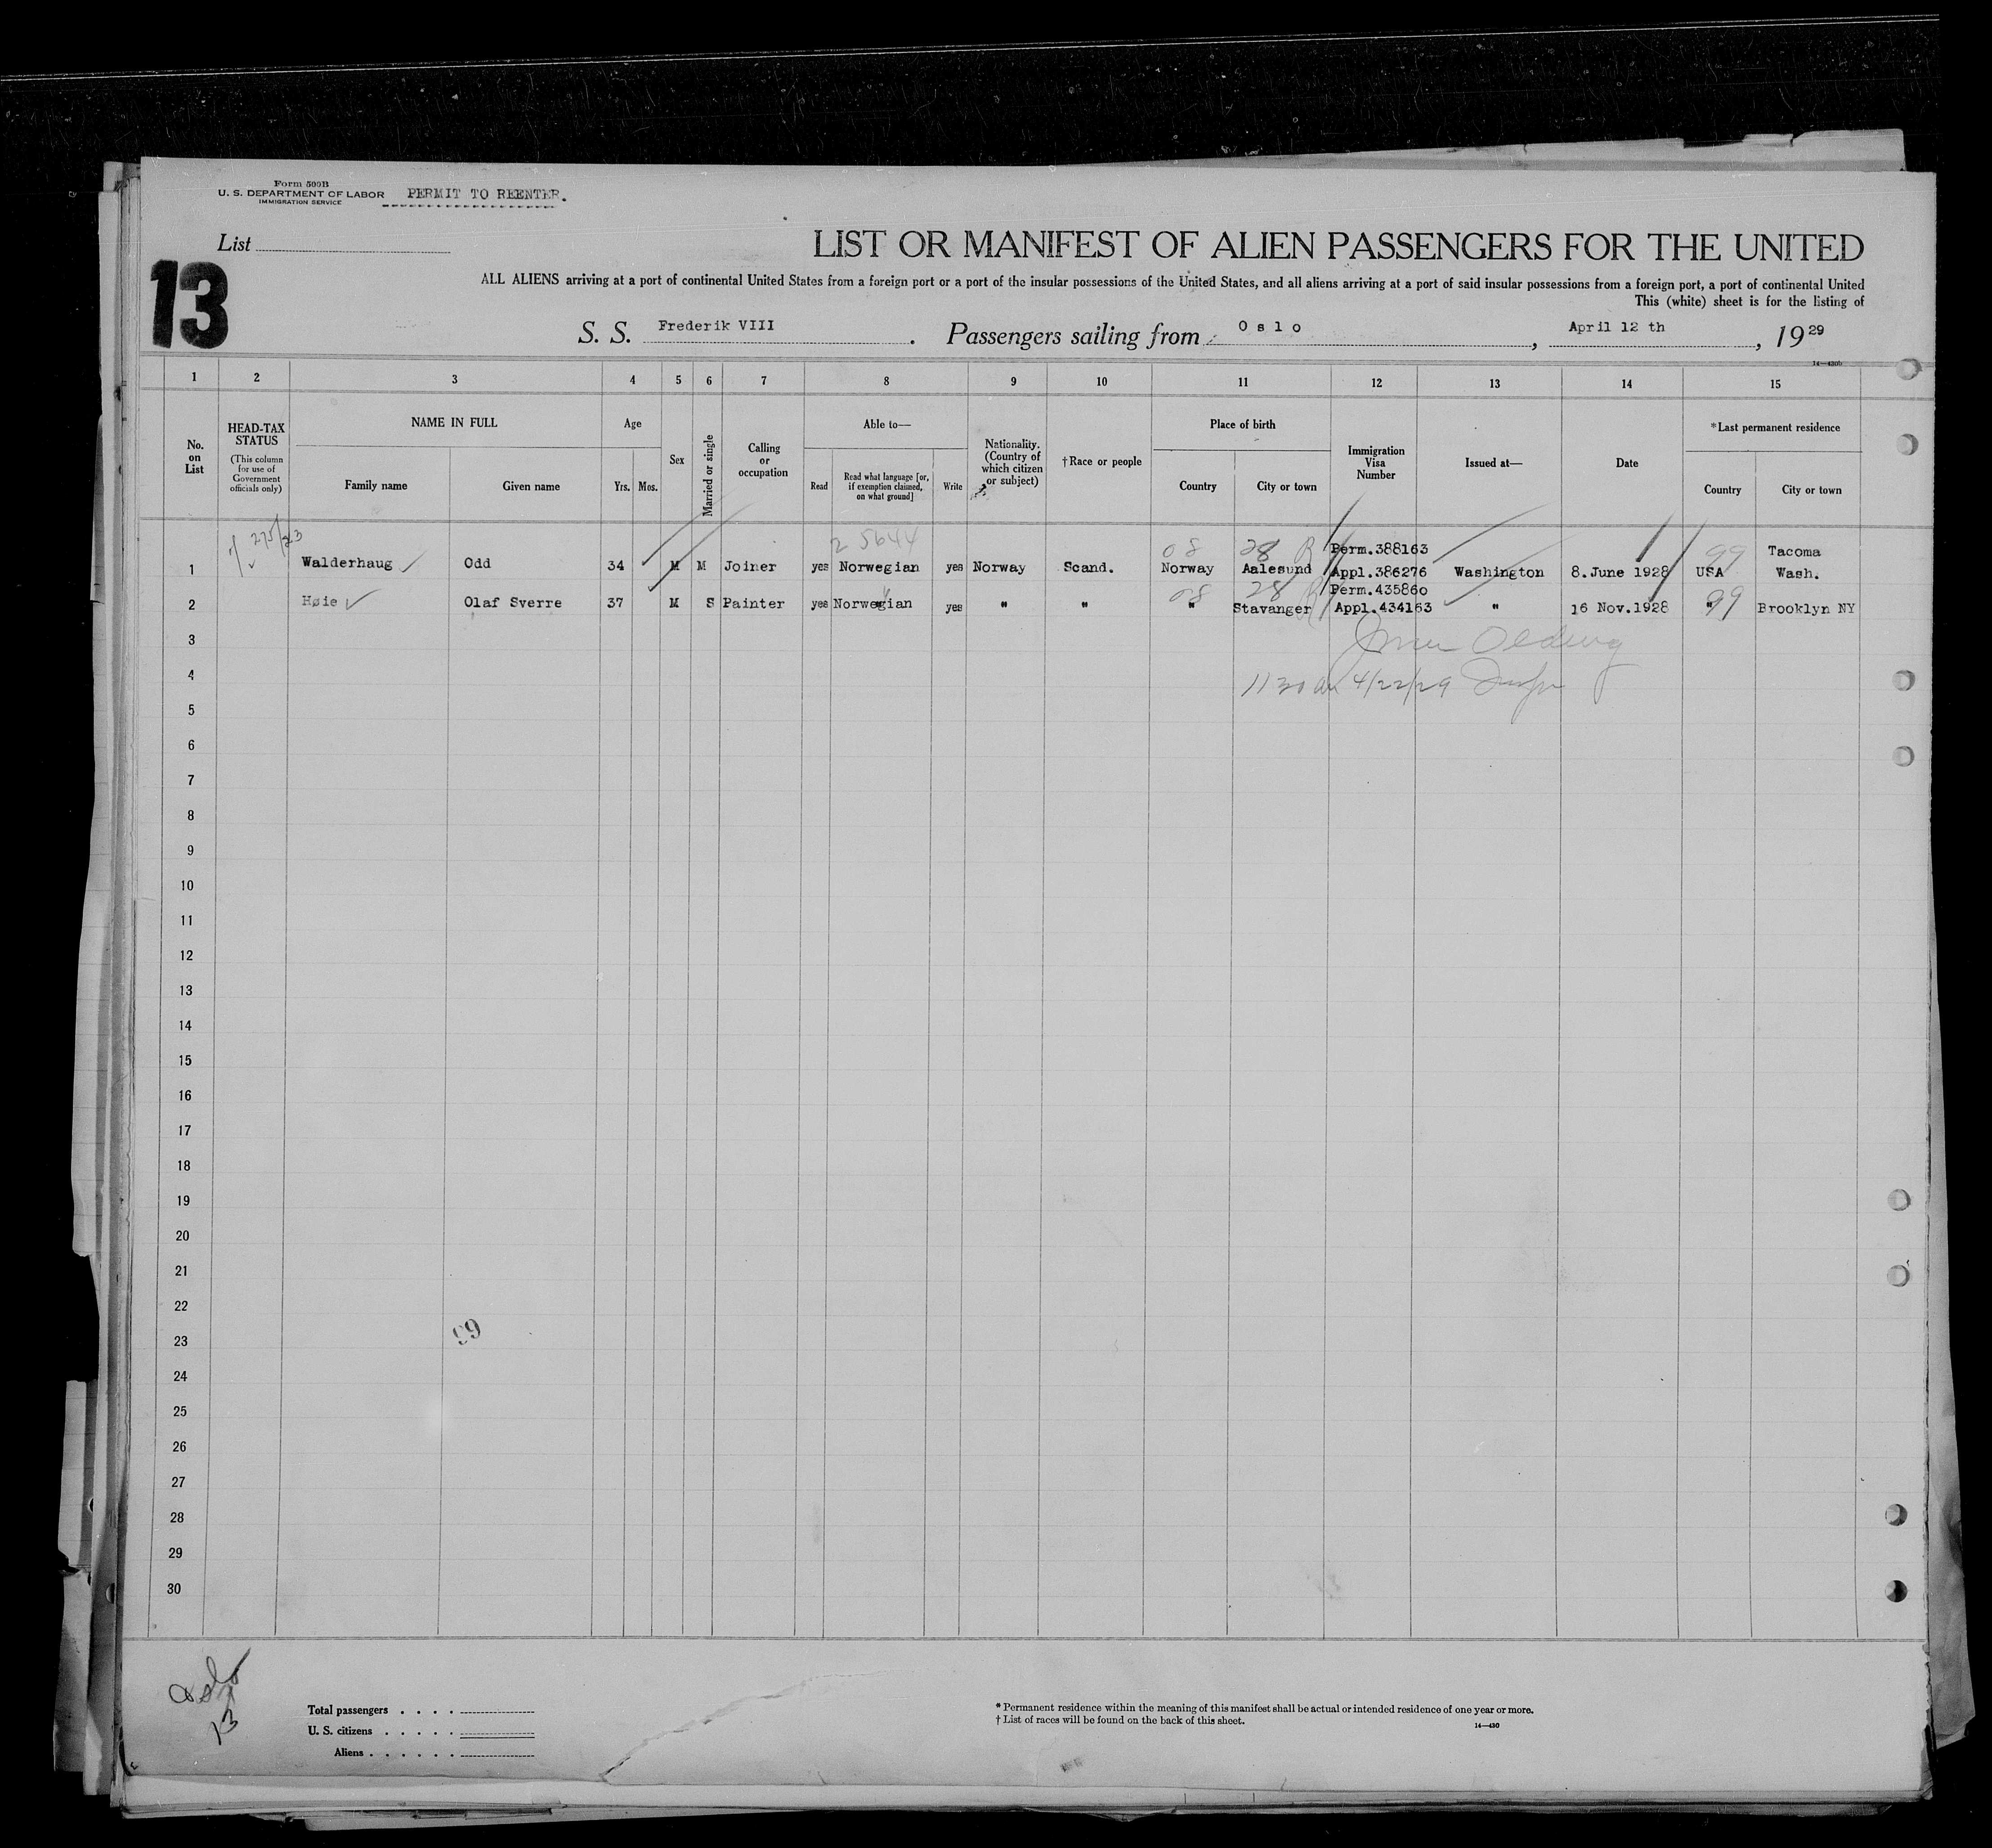 Form 500B
U. S. DEPARTMENT OF LABOR
IMMIGRATION SERVICE
PERMIT TO REENTER.
List
13
LIST OR MANIFEST OF ALIEN PASSENGERS FOR THE UNITED
ALL ALIENS arriving at a port of continental United States from a foreign port or a port of the insular possessions of the United States, and all aliens arriving at a port of said insular possessions from a foreign port, a port of continental United
This (white) sheet is for the listing of
S. S. Frederik VIII. Passengers sailing from Oslo, April 12 th, 1929
14—430b
1 2 3 4 5 6 7 8 9 10 11 12 13 14 15
No. on List
HEAD-TAX STATUS
(This column for use of Government officials only)
NAME IN FULL
Family name
Given name
Age
Yrs. Mos.
Sex
Married or single
Calling or occupation
Able to—
Read
Read what language [or, if exemption claimed, on what ground]
Write
Nationality. (Country of which citizen or subject)
†Race or people
Place of birth
Country
City or town
Immigration Visa Number
Issued at—
Date
*Last permanent residence
Country
City or town
275/23
2 5644
08 28 99
1 Walderhaug Odd 34 M M Joiner yes Norwegian yes Norway Scand. Norway Aalesund Perm.388163 Appl.386276 Washington 8.June 1928 USA Tacoma Wash.
08 28 99
2 Høie Olaf Sverre 37 M S Painter yes Norwegian yes " " " Stavanger Perm.435860 Appl.434163 " 16 Nov.1928 " Brooklyn NY
3
1130 am 4/22/29
4
5
6
7
8
9
10
11
12
13
14
15
16
17
18
19
20
21
22
23
99
24
25
26
27
28
29
30
Oslo
13
Total passengers . . . .
U. S. citizens . . . . .
Aliens . . . . . .
* Permanent residence within the meaning of this manifest shall be actual or intended residence of one year or more.
† List of races will be found on the back of this sheet.
14—430